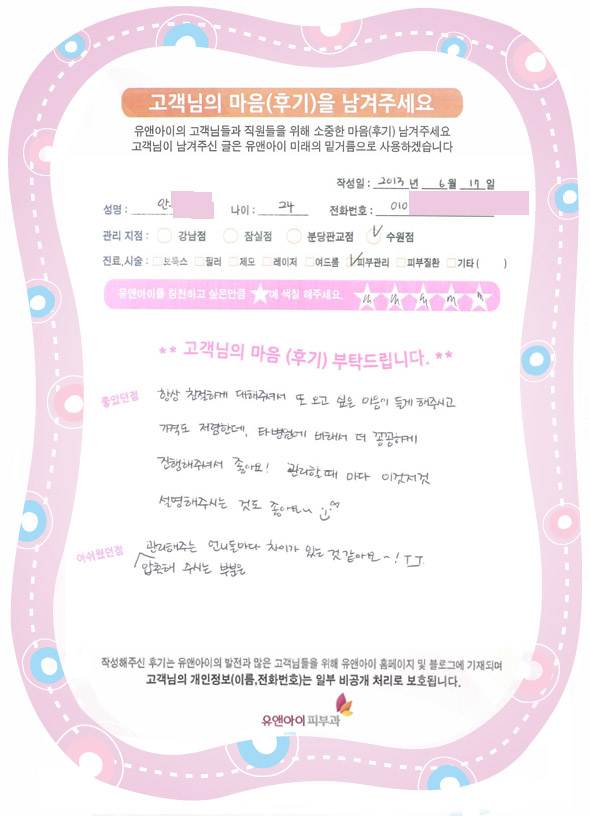 고객님의 마음(후기)을 남겨주세요
유앤아이의 고객님들과 직원들을 위해 소중한 마음(후기) 남겨주세요
고객님이 남겨주신 글은 유앤아이 미래의 밑거름으로 사용하겠습니다
작성일 : 2013 년 6 월 17 일
성명 : 안 나이 : 24 전화번호 : 010
관리 지점 : 강남점 잠실점 분당판교점 수원점
진료,시술 : 보톡스 필러 제모 레이저 여드름 피부관리 피부질환 기타 ( )
유앤아이를 칭찬하고 싶은만큼 ★에 색칠 해주세요.
** 고객님의 마음 (후기) 부탁드립니다. **
좋았던점 항상 친절하게 대해주셔서 또 오고 싶은 마음이 들게 해주시고
가격도 저렴한데, 타병원에 비해서 더 꼼꼼하게
진행해주셔서 좋아요! 관리할때 마다 이것저것
설명해주시는 것도 좋아요~ :)
아쉬웠던점 관리해주는 언니들마다 차이가 있는 것 같아요~! ㅜㅜ.
압출해 주시는 부분은
작성해주신 후기는 유앤아이의 발전과 많은 고객님들을 위해 유앤아이 홈페이지 및 블로그에 기재되며
고객님의 개인정보(이름,전화번호)는 일부 비공개 처리로 보호됩니다.
유앤아이 피부과